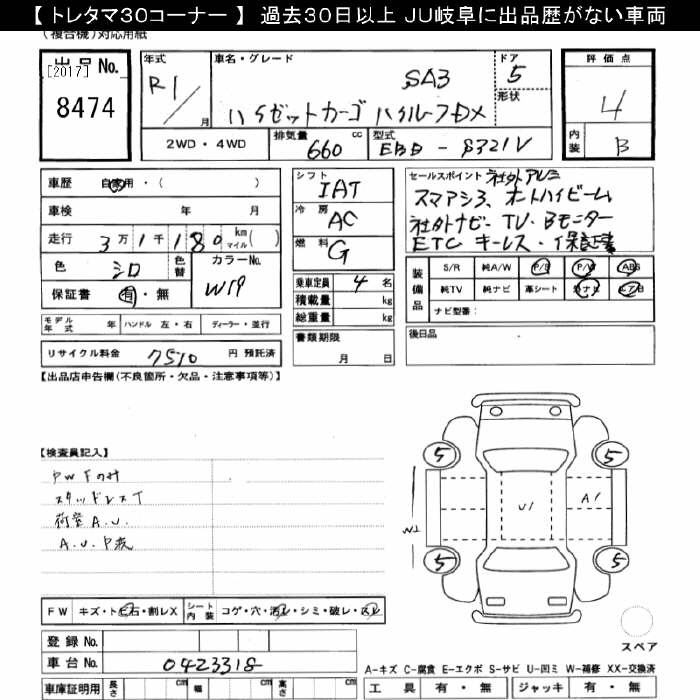 【 トレタマ30コーナー 】 過去30日以上 JU岐阜に出品歴がない車両
(複合機)対応用紙
出品No.
[2017]
8474
年式
R1/月
車名・グレード
SA3
ハイゼットカーゴ ハイルーフDX
ドア
5
形状
2WD・4WD
排気量
660 cc
型式
EBD - S321V
評価点
4
内装
B
車歴 自家用・( )
車検 年 月
走行 3万1千180 km マイル( )
色 シロ
色替
カラーNo.
W19
保証書 有・無
モデル年式 年 ハンドル 左・右 ディーラー・並行
リサイクル料金 7570 円 預託済
シフト
IAT
冷房
AC
燃料
G
乗車定員 4 名
積載量 kg
総重量 kg
書類期限
月 日
セールスポイント 社外アルミ
スマアシ3、オートハイビーム
社外ナビ・TV・Bモニター
ETC キーレス・保証書
装備品
S/R 純A/W P/S P/W ABS
純TV 純ナビ 革シート 社外ナビ エアB
ナビ型番:
後日品
【出品店申告欄(不良箇所・欠品・注意事項等)】
【検査員記入】
PWFのみ
スタッドレスT
荷室A.U.
A.U.P洗
5
5
5
5
U1
A1
W2
FW キズ・トビ石・割レX
シート内装 コゲ・穴・汚レ・シミ・破レ・スレ
登録No.
車台No. 0423318
車庫証明用 長さ cm 幅 cm 高さ cm
スペア
A-キズ C-腐食 E-エクボ S-サビ U-凹ミ W-補修 XX-交換済
工具 有・無 ジャッキ 有・無